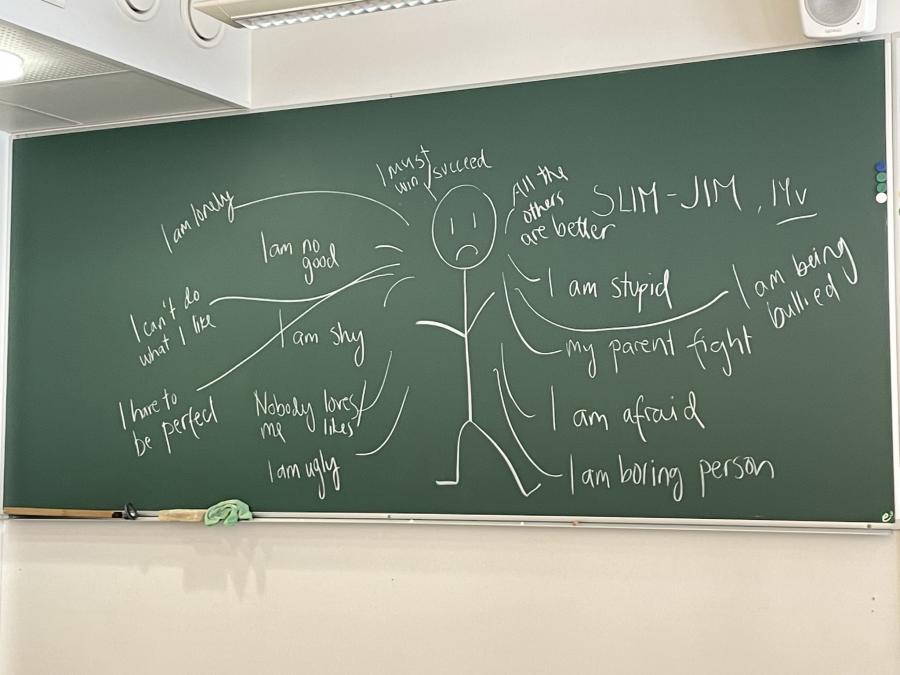 I must
win/succeed
All the
others
are better
SLIM-JIM, 14v
I am lonely
I am no
good
I can't do
what I like
I am shy
I have to
be perfect
Nobody loves/
me likes
I am ugly
I am stupid
I am being
bullied
my parent fight
I am afraid
I am boring person